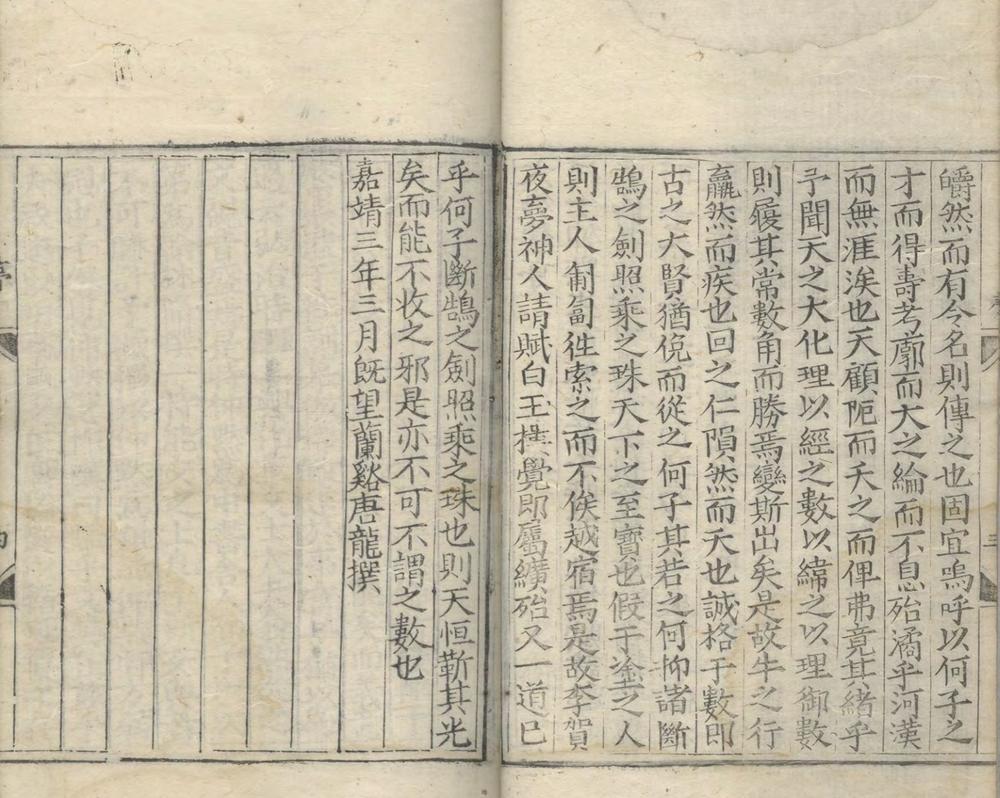 皭然而有今名則傳之也固宜嗚呼以何子之
才而得壽考廓而大之綸而不息殆潏乎河漢
而無涯涘也天顧阨而夭之而俾弗竟其緒乎
予聞天之大化理以經之數以緯之以理御數
則履其常數角而勝焉變斯出矣是故牛之行
羸然而疾也回之仁隕然而夭也誠格于數即
古之大賢猶俛而從之何子其若之何抑諸斷
鵠之劍照乘之珠天下之至寶也假于塗之人
則主人匍匐徃索之而不俟越宿焉是故李賀
夜夢神人請賦白玉樓覺即屬纊殆又一道已
乎何子斷鵠之劍照乘之珠也則天恒靳其光
矣而能不收之邪是亦不可不謂之數也
嘉靖三年三月旣望蘭谿唐龍撰
亭
三